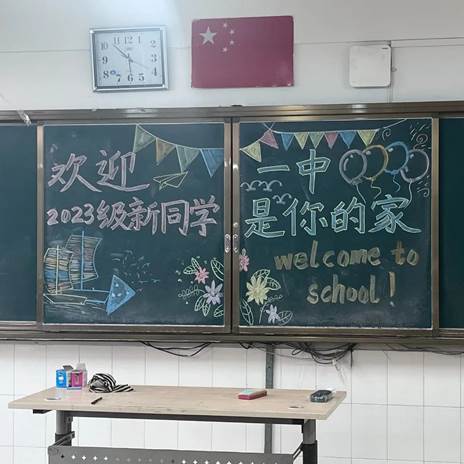 欢迎
2023级新同学
一中
是你的家
welcome to
school!